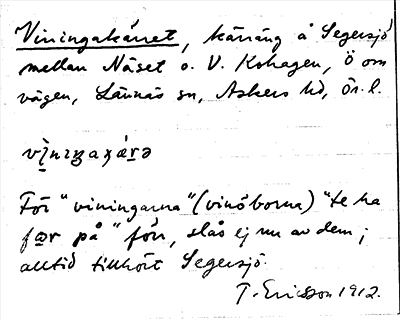 Viningakärret, kärräng å Segersjö
mellan Näset o. V. Kohagen, Ö om
vägen, Lännäs sn, Askers hd, Ör. l.
För "viningarna" (vinöborna) "te ha
på" förr, slås ej nu av dem;
alltid tillhört Segersjö.
T. Ericsson 1912.